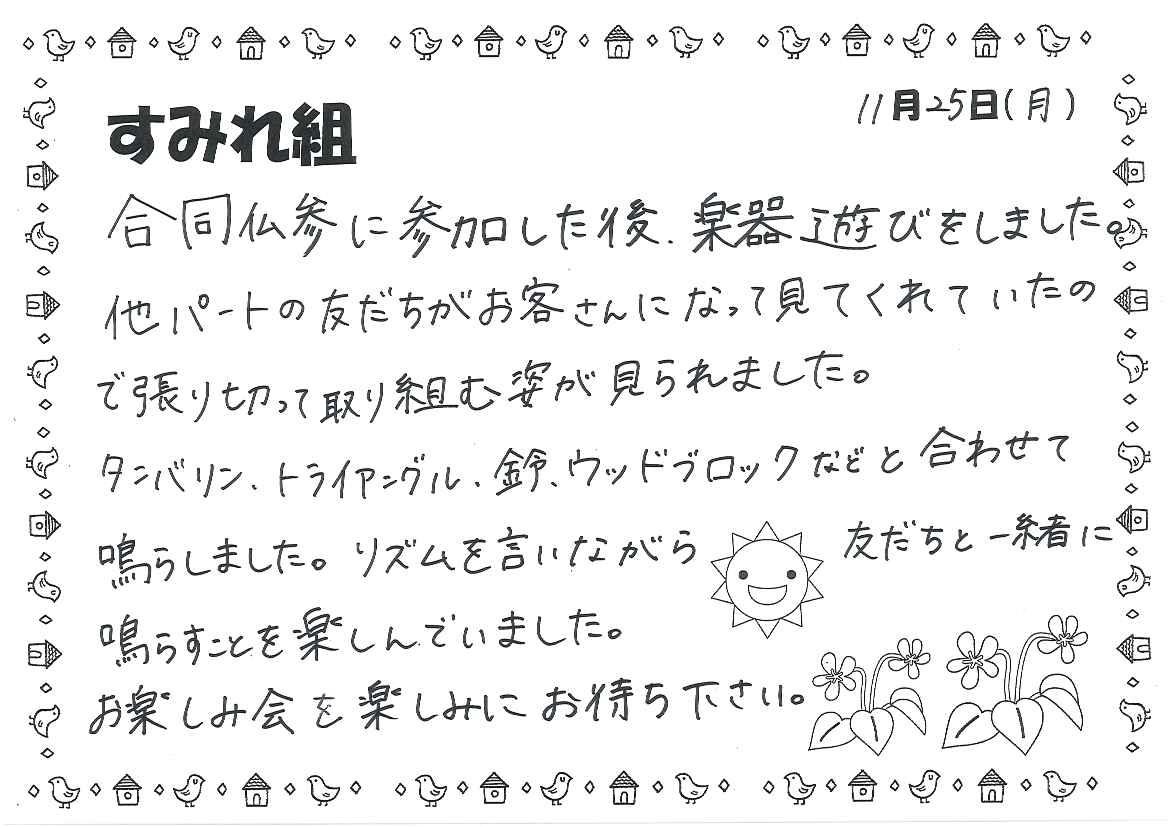 すみれ組
11月25日(月)
合同仏参に参加した後、楽器遊びをしました。
他パートの友だちがお客さんになって見てくれていたの
で張り切って取り組む姿が見られました。
タンバリン、トライアングル、鈴、ウッドブロックなどと合わせて
鳴らしました。リズムを言いながら 友だちと一緒に
鳴らすことを楽しんでいました。
お楽しみ会を楽しみにお待ち下さい。